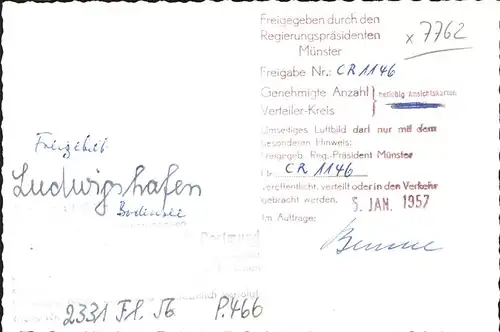 Freigegeben durch den
Regierungspräsidenten
Münster
x 7762
Freigabe Nr.: CR 1146
Genehmigte Anzahl } beliebig Ansichtskarten
Verteiler-Kreis
Umseitiges Luftbild darf nur mit dem
besonderen Hinweis:
Freigegeb. Reg.-Präsident Münster
Nr. CR 1146
veröffentlicht, verteilt oder in den Verkehr
gebracht werden. 5. JAN. 1957
Im Auftrage:
Ludwigshafen
Bodensee
Dortmund
2331 Fr. 56 P.466